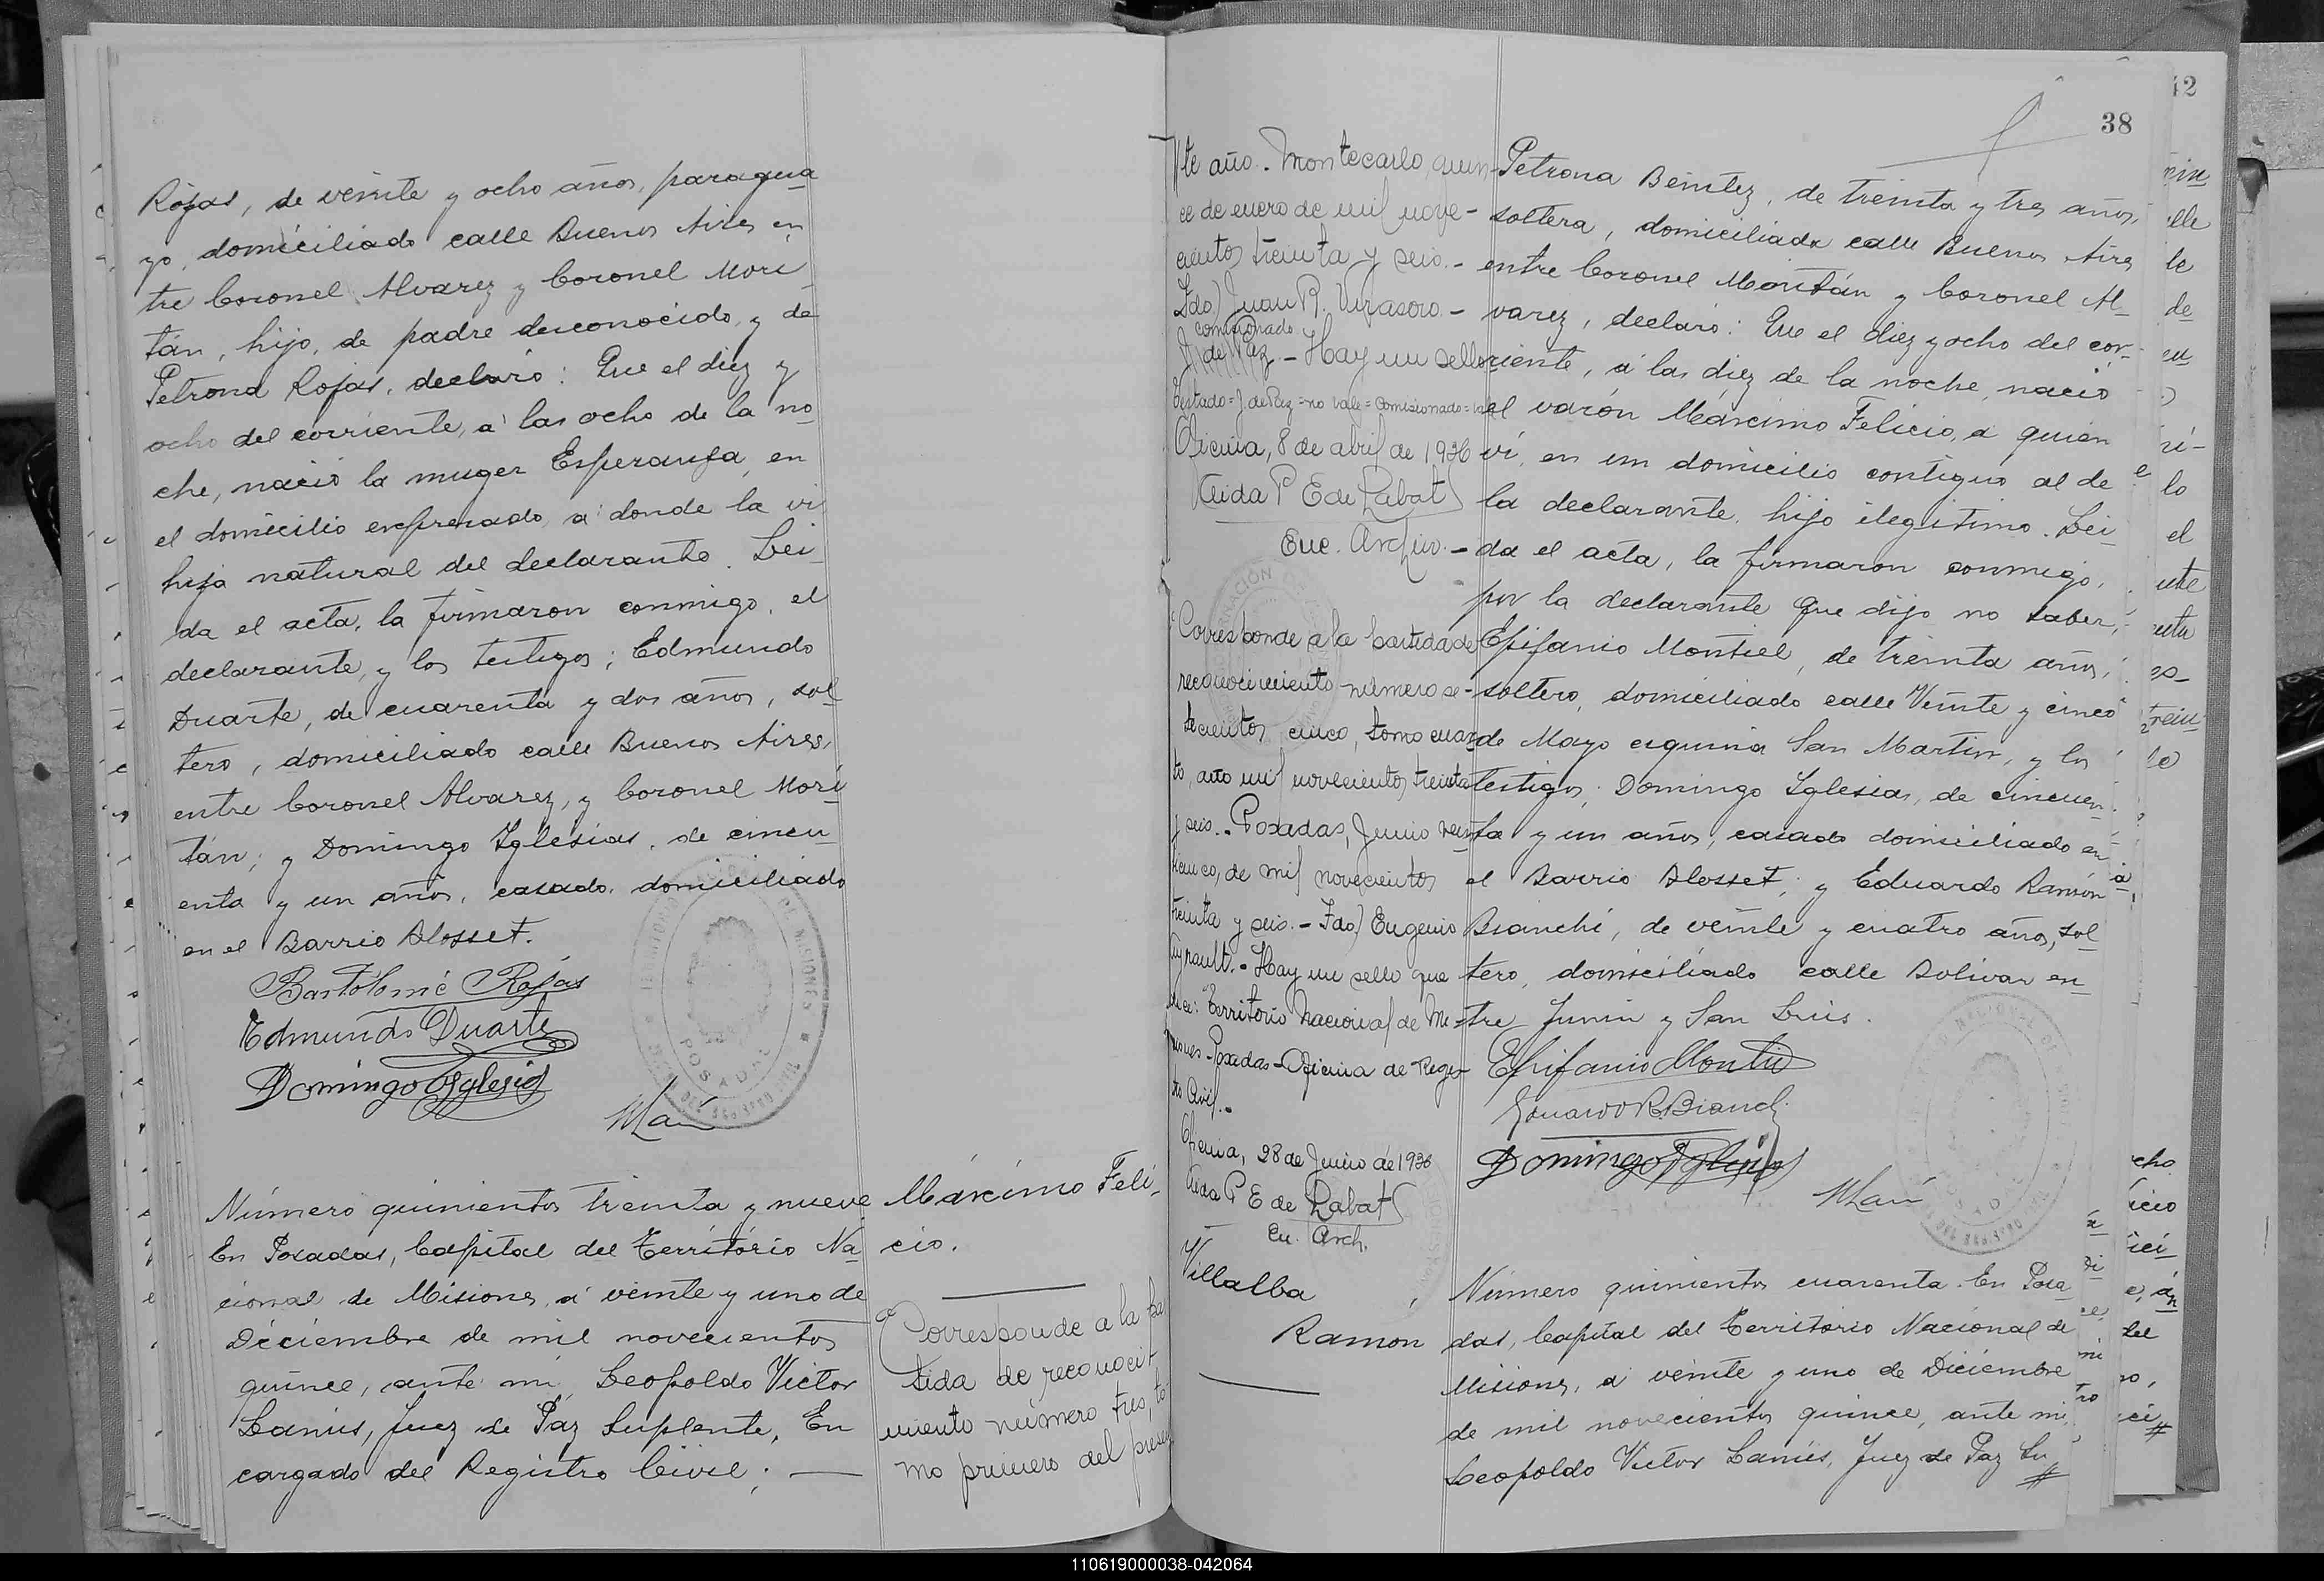 Rojas, de veinte y ocho años, paragua
yo, domiciliado calle Buenos Aires en
tre Coronel Alvarez y Coronel Mori
tán, hijo, de padre desconocido, y de
Petrona Rojas, declaró: Que el diez y
ocho del corriente, a las ocho de la no
che, nació la muger Esperanza, en
el domicilio expresado, a donde la ví
hija natural del declarante. Lei
da el acta, la firmaron conmigo, el
declarante, y los testigos; Edmundo
Duarte, de cuarenta y dos años, sol
tero, domiciliado calle Buenos Aires,
entre Coronel Alvarez, y Coronel Mori
tán; y Domingo Yglesias, de cincu
enta y un años, casado, domiciliado
en el Barrio Blosset.
Bartolomé Rojas
Edmundo Duarte
Domingo Yglesias
POSADAS
Número quinientos treinta y nueve
En Posadas, Capital del Territorio Na
cional de Misiones, a veinte y uno de
Diciembre de mil novecientos
quince, ante mi, Leopoldo Victor
Lanús, Juez de Paz Suplente, En
cargado del Registro Civil;
Márcimo Feli-
cio.
Corresponde a la par
tida de reconoci
miento número tres, to
mo primero del presen
te año.- Montecarlo, quin
ce de enero de mil nove-
cientos treinta y seis.-
Fdo) Juan R. Virasoro-
comisionado
J. de Paz.- Hay un sello
Testado=J. de Paz=no vale=comisionado=vale
Oficina, 8 de abril de 1936
Aida P E de Rabat
Enc. Archivo.-
Corresponde a la partida de
reconocimiento número se-
tecientos cinco, tomo cuar
to, año mil novecientos treinta
y seis.- Posadas, Junio vein
ticinco, de mil novecientos
treinta y seis.- Fdo) Eugenio
Hay un sello que
dice: Territorio Nacional de Mi-
siones-Posadas-Oficina de Regis-
tro Civil.-
Oficina, 28 de Junio de 1936
Aida P E de Rabat
En. Arch.
Villalba
Ramon
38
Petrona Benitez, de treinta y tres años,
soltera, domiciliada calle Buenos Aires
entre Coronel Moritán y Coronel Al-
varez, declaró: Que el diez y ocho del cor-
riente, a las diez de la noche, nació
el varón Márcimo Felicio, a quien
ví, en un domicilio contiguo al de
la declarante, hijo ilegitimo. Lei-
da el acta, la firmaron conmigo,
por la declarante que dijo no saber,
Epifanio Montiel, de treinta años,
soltero, domiciliado calle Veinte y cinco
de Mayo esquina San Martin, y los
testigos; Domingo Yglesias, de cincuen
ta y un años, casado domiciliado en
el Barrio Blosset; y Eduardo Ramón
Bianchi, de veinte y cuatro años, sol
tero, domiciliado calle Bolivar en
tre Junin y San Luis.
Epifanio Montiel
Eduardo R. Bianchi
Domingo Yglesias
Número quinientos cuarenta. En Posa
das, Capital del Territorio Nacional de
Misiones, a veinte y uno de Diciembre
de mil novecientos quince, ante mi
Leopoldo Victor Lanús, Juez de Paz Su
12
110619000038-042064